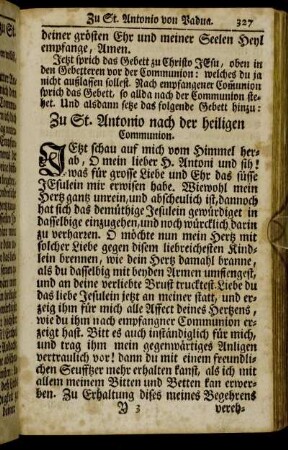 Zu St. Antonio von Padua. 327
deiner grösten Ehr und meiner Seelen Heyl
empfange, Amen.
Jetzt sprich das Gebett zu Christo JEsu, oben in
den Gebetteren vor der Communion: welches du ja
nicht außlassen sollest. Nach empfangener Comunion
sprich das Gebett, so allda nach der Communion ste-
het. Und alsdann setze das folgende Gebett hinzu:
Zu St. Antonio nach der heiligen
Communion.
JEtzt schau auf mich vom Himmel her-
ab, O mein lieber H. Antoni und sih!
was für grosse Liebe und Ehr das süsse
JEsulein mir erwisen habe. Wiewohl mein
Hertz gantz unrein, und abscheulich ist, dannoch
hat sich das demüthige Jesulein gewürdiget in
dasselbige einzugehen, und noch würcklich darin
zu verharren. O möchte nun mein Hertz mit
solcher Liebe gegen disem liebreichesten Kind-
lein brennen, wie dein Hertz damahl branne,
als du dasselbig mit beyden Armen umfiengest,
und an deine verliebte Brust trucktest. Liebe du
das liebe Jesulein jetzt an meiner statt, und er-
zeig ihm für mich alle Affect deines Hertzens,
wie du ihm nach empfangner Communion er-
zeigt hast. Bitt es auch inständiglich für mich,
und trag ihm mein gegenwärtiges Anligen
vertraulich vor! dann du mit einem freundli-
chen Seufftzer mehr erhalten kanst, als ich mit
allem meinem Bitten und Betten kan erwer-
ben. Zu Erhaltung dises meines Begehrens
Y 3 vereh-